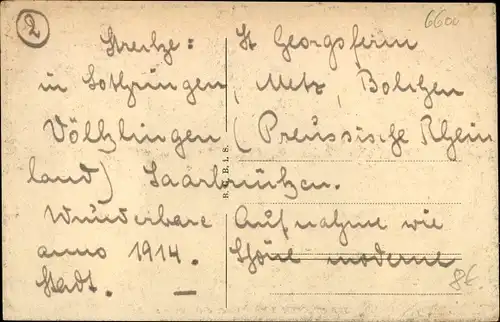 2
6600
Strecke: St Georgsferm
in Lothringen, Metz, Bolchen
Völklingen (Preussische Rhein
land) Saarbrücken.
Wunderbare Aufnahme wie
anno 1914. Schöne moderne
Stadt. —
8€